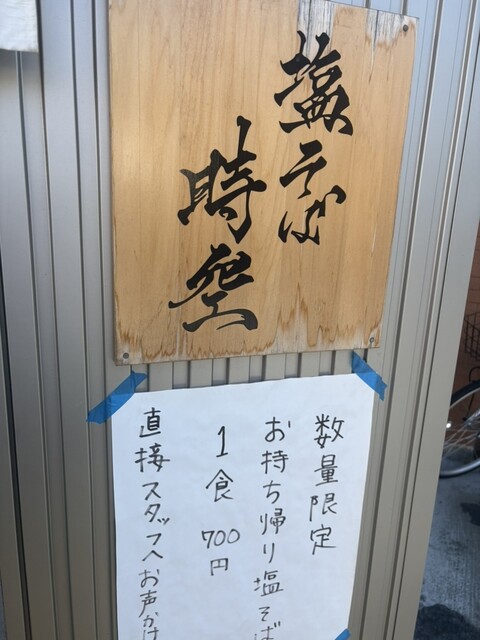 塩そば
時空
数量限定
お持ち帰り塩そば
1食 700円
直接スタッフへお声かけ